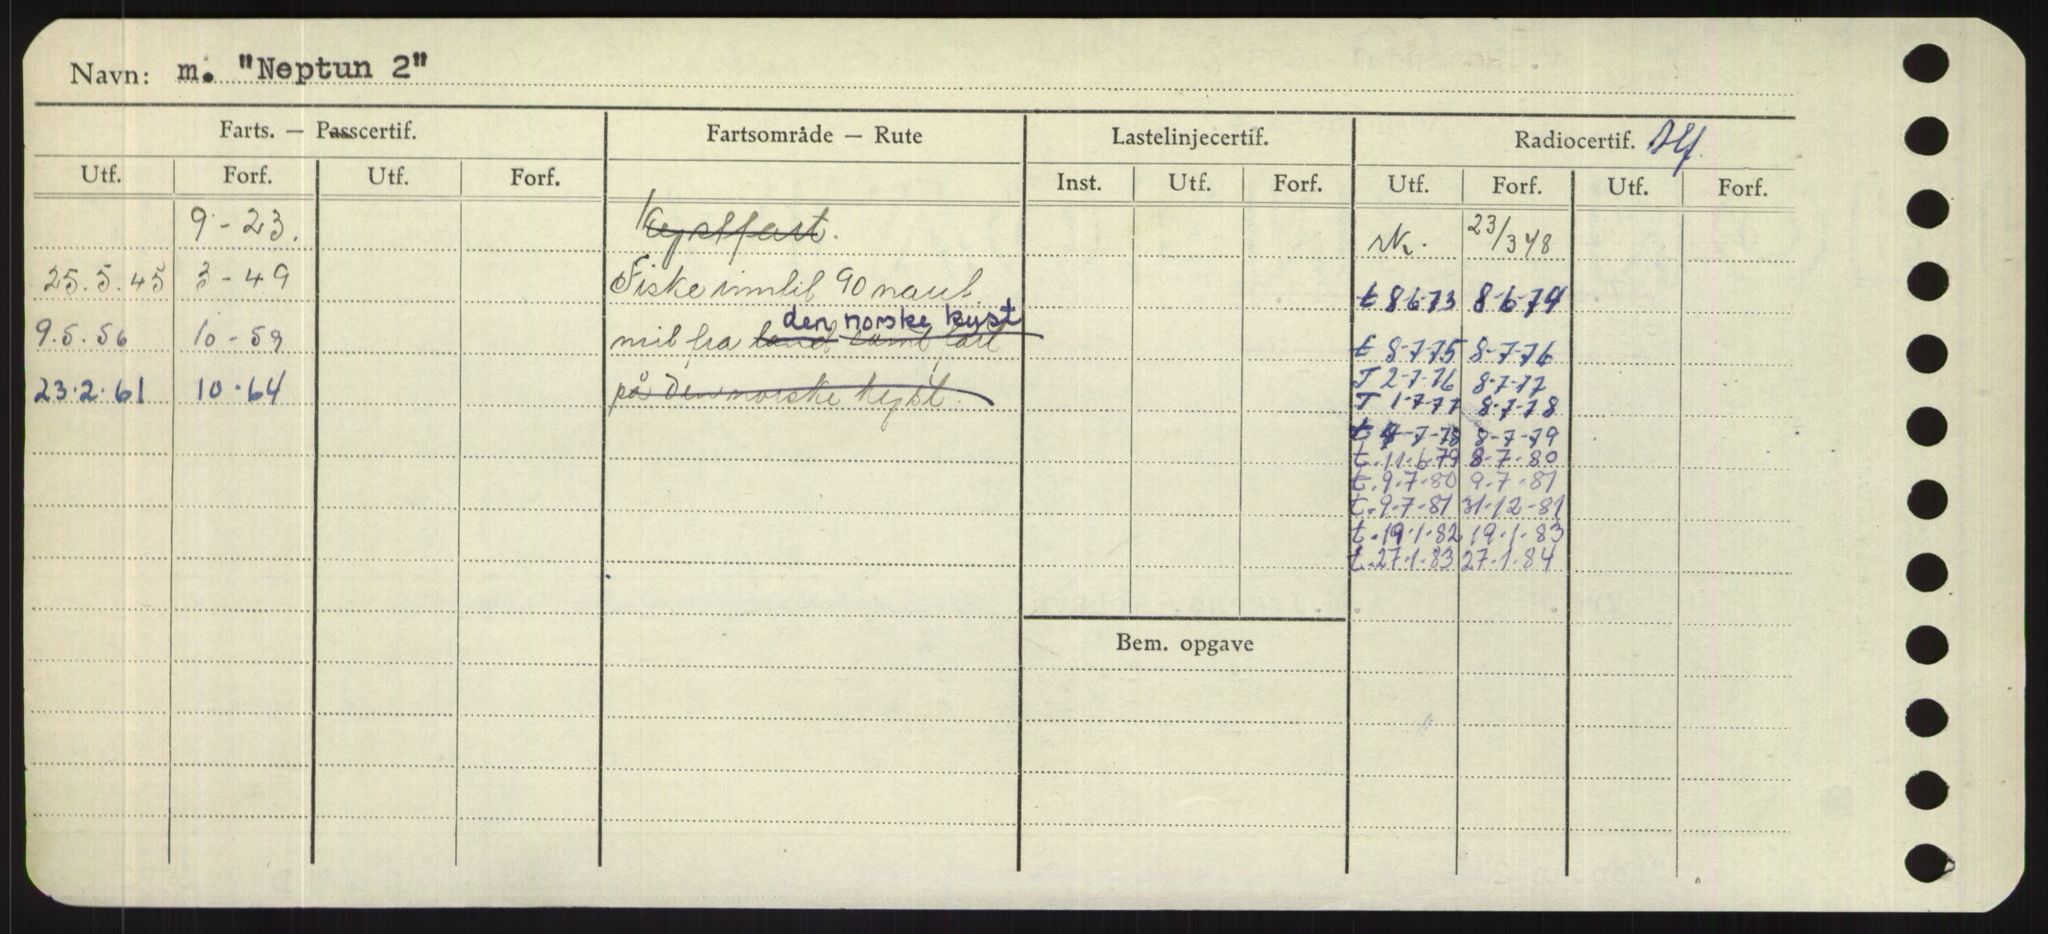 Navn: m. "Neptun 2"
Farts. — Passcertif. Fartsområde — Rute Lastelinjecertif. Radiocertif.
Utf. Forf. Utf. Forf. Inst. Utf. Forf. Utf. Forf. Utf. Forf.
9-23. Kystfart. 23/3 48
25.5.45 3-49 Fiske inntil 90 naut. t 8-6-73 8-6-74
den norske kyst
9.5.56 10-59 mil fra land samt fart t 8-7-75 8-7-76
T 2-7-76 8-7-77
23.2.61 10.64 på den norske kyst. T 1-7-77 8-7-78
t 7-7-78 8-7-79
t.11.6.79 8-7-80
t.9.7-80 9.7-81
t.9-7-81 31-12-81
t.19.1.82 19.1.83
t.27.1.83 27.1.84
Bem. opgave